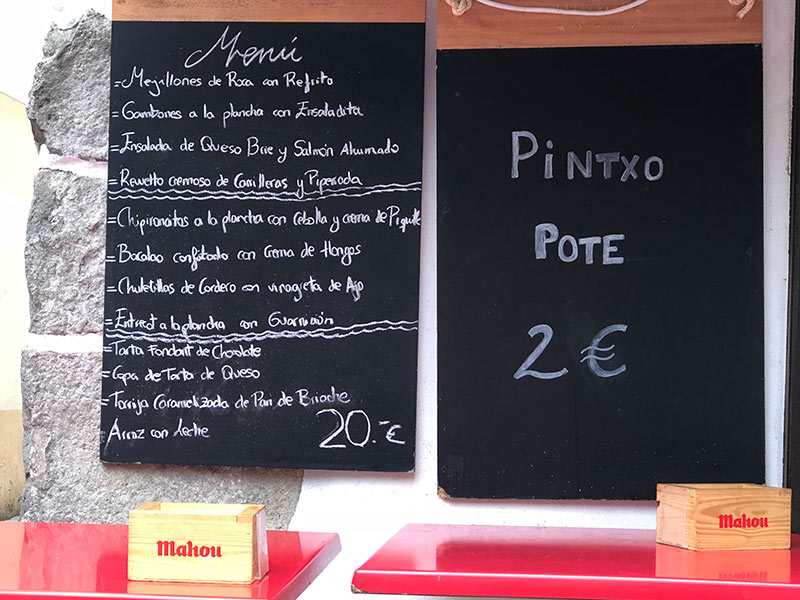 Menú
= Mejillones de Roca con Refrito
= Gambones a la plancha con Ensaladita
= Ensalada de Queso Brie y Salmón Ahumado
= Revuelto cremoso de Carrilleras y Piperrada
= Chipironcitos a la plancha con Cebolla y crema de Piquillo
= Bacalao confitado con Crema de Hongos
= Chuletillas de Cordero con vinagreta de Ajo
= Entrecot a la plancha con Guarnición
= Tarta Fondant de Chocolate
= Copa de Tarta de Queso
= Torrija Caramelizada de Pan de Brioche
Arroz con Leche
20.-€
PINTXO
POTE
2€
Mahou
Mahou